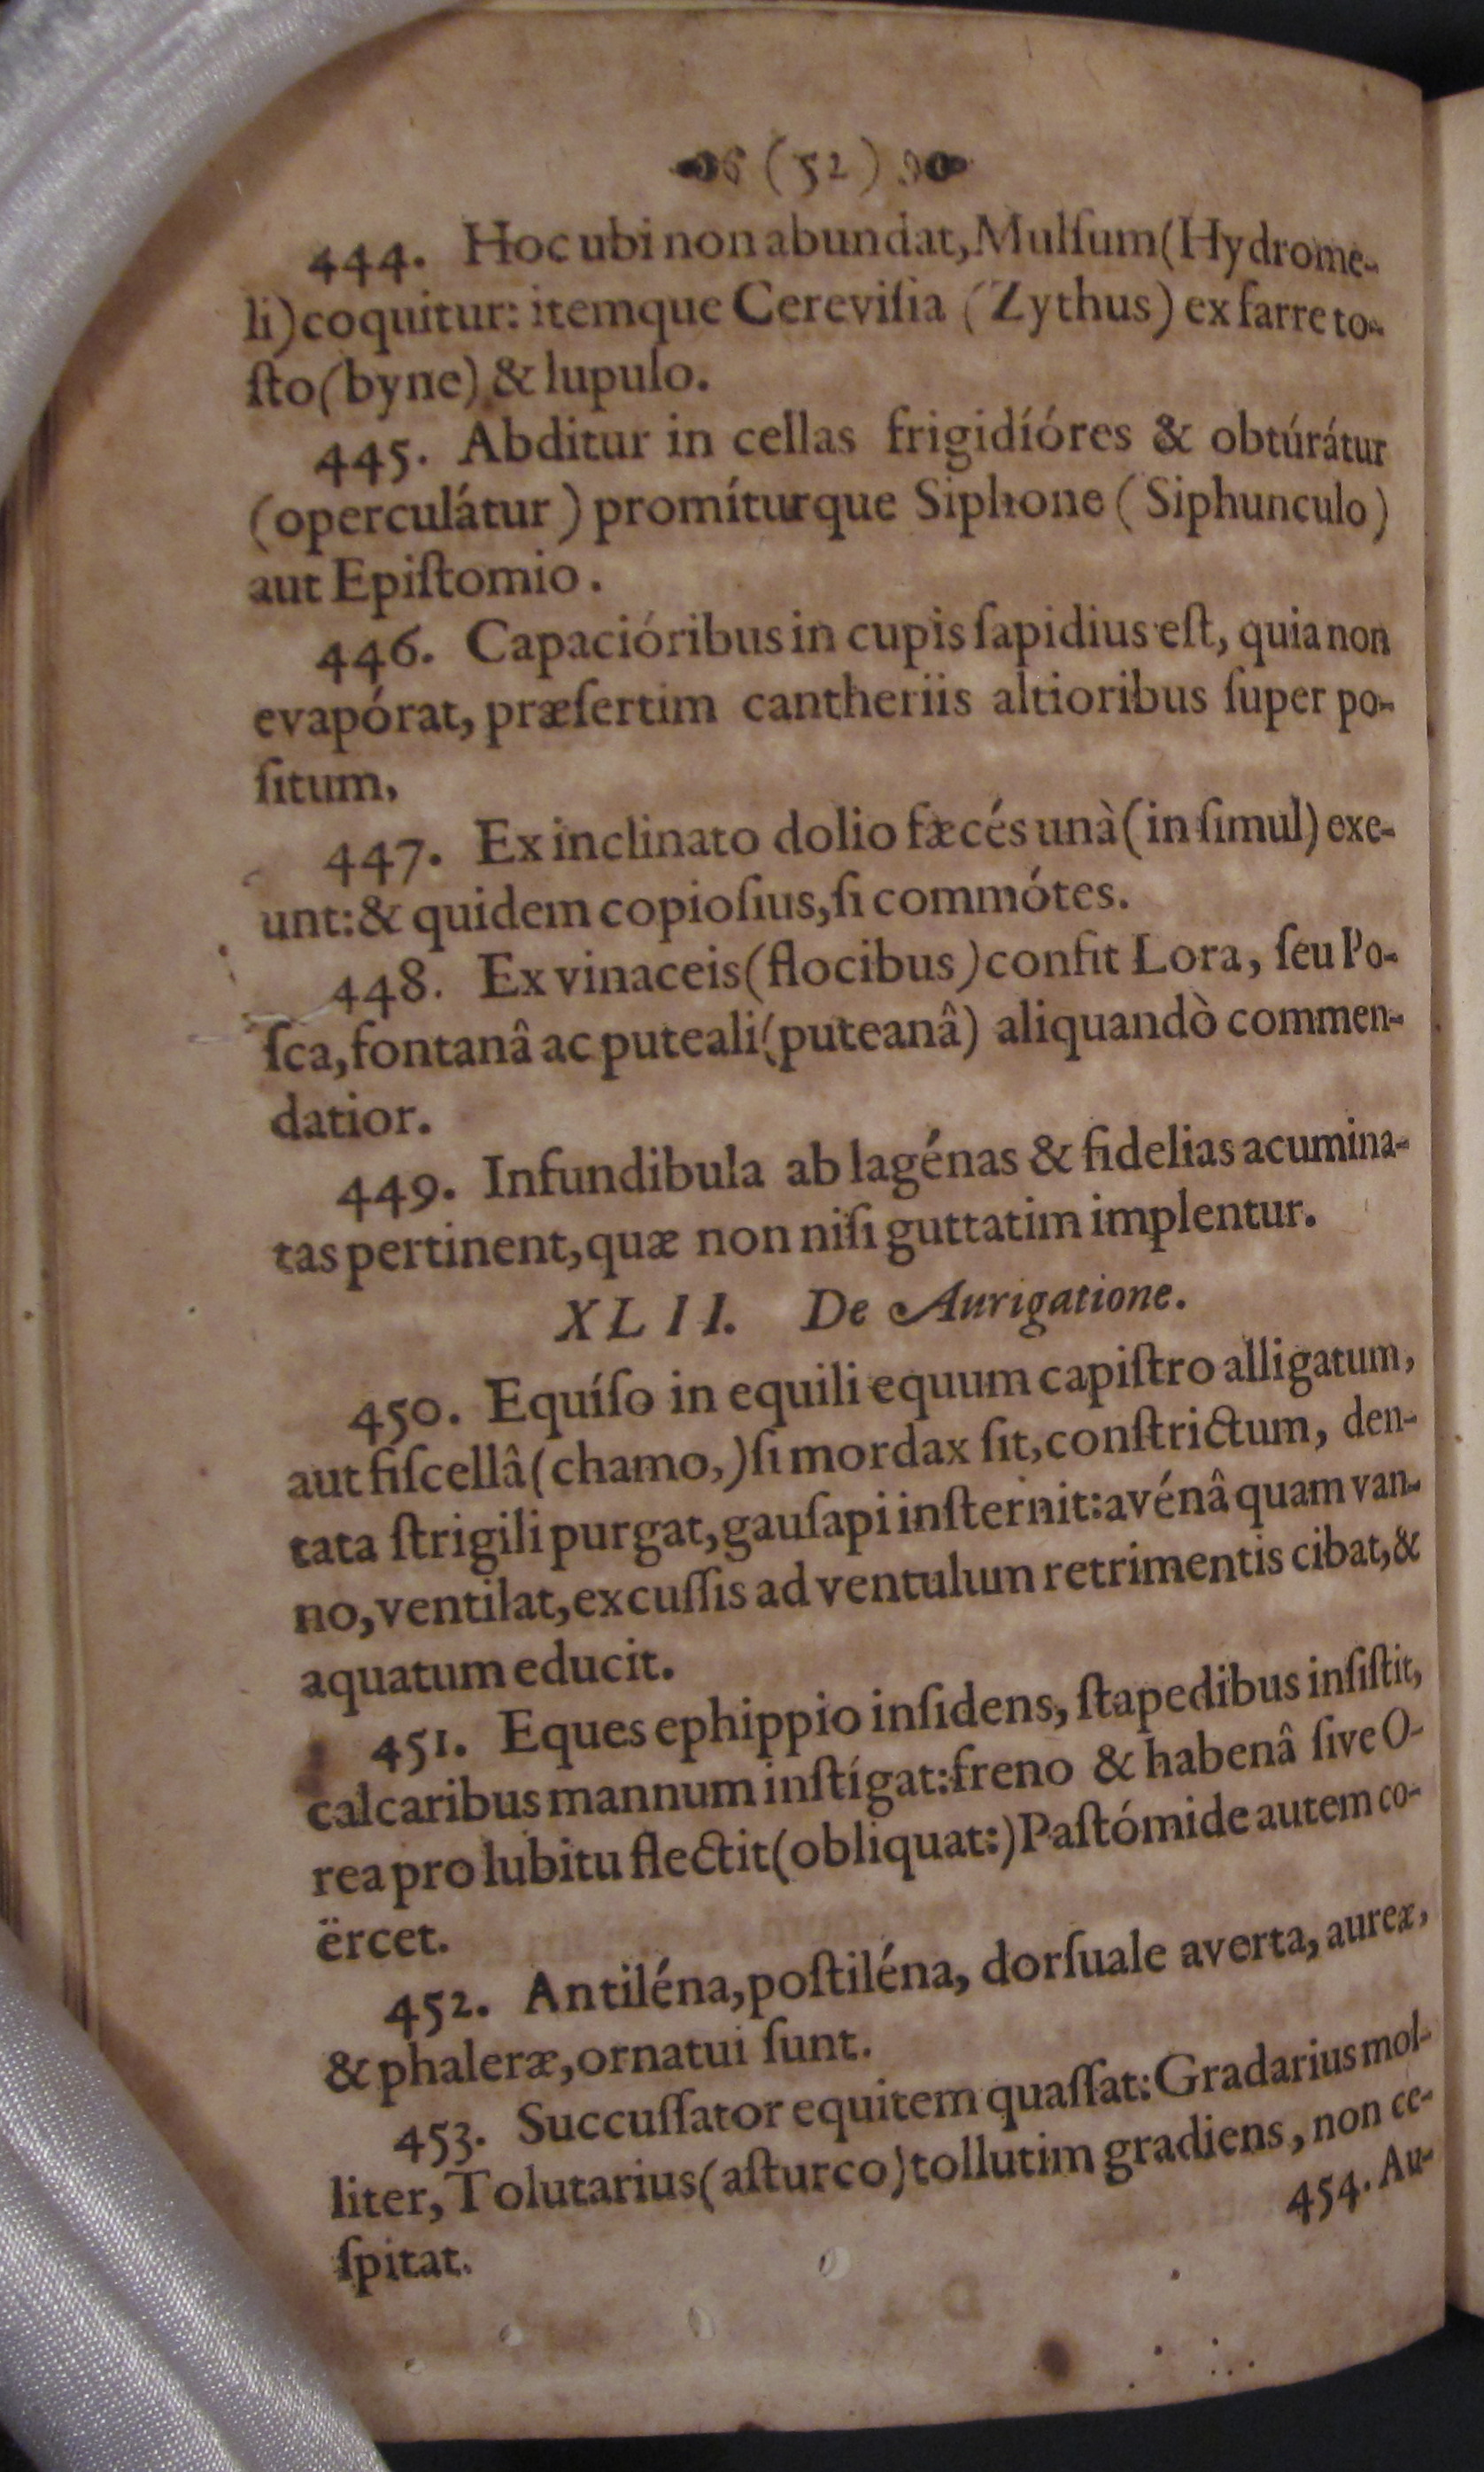 (52)
444. Hoc ubi non abundat, Mulſum (Hydrome-
li) coquitur: itemque Cereviſia (Zythus) ex farre to-
ſto (byne) & lupulo.
445. Abditur in cellas frigidíóres & obtúrátur
(operculátur) promíturque Siphone (Siphunculo)
aut Epiſtomio.
446. Capacióribus in cupis ſapidius eſt, quia non
evapórat, præſertim cantheriis altioribus ſuper po-
ſitum,
447. Ex inclinato dolio fæcés unà (in ſimul) exe-
unt: & quidem copioſius, ſi commótes.
448. Ex vinaceis (flocibus) confit Lora, ſeu Po-
ſca, fontanâ ac puteali (puteanâ) aliquandò commen-
datior.
449. Infundibula ab lagénas & fidelias acumina-
tas pertinent, quæ non niſi guttatim implentur.
XLII. De Aurigatione.
450. Equíſo in equili equum capiſtro alligatum,
aut fiſcellâ (chamo,) ſi mordax ſit, conſtrictum, den-
tata ſtrigili purgat, gauſapi inſternit: avénâ quam van-
no, ventilat, excuſſis ad ventulum retrimentis cibat, &
aquatum educit.
451. Eques ephippio inſidens, ſtapedibus inſiſtit,
calcaribus mannum inſtígat: freno & habenâ ſive O-
rea pro lubitu flectit (obliquat:) Paſtómide autem co-
ërcet.
452. Antiléna, poſtiléna, dorſuale averta, aureæ,
& phaleræ, ornatui ſunt.
453. Succuſſator equitem quaſſat: Gradarius mol-
liter, Tolutarius (aſturco) tollutim gradiens, non ce-
ſpitat.
454. Au-